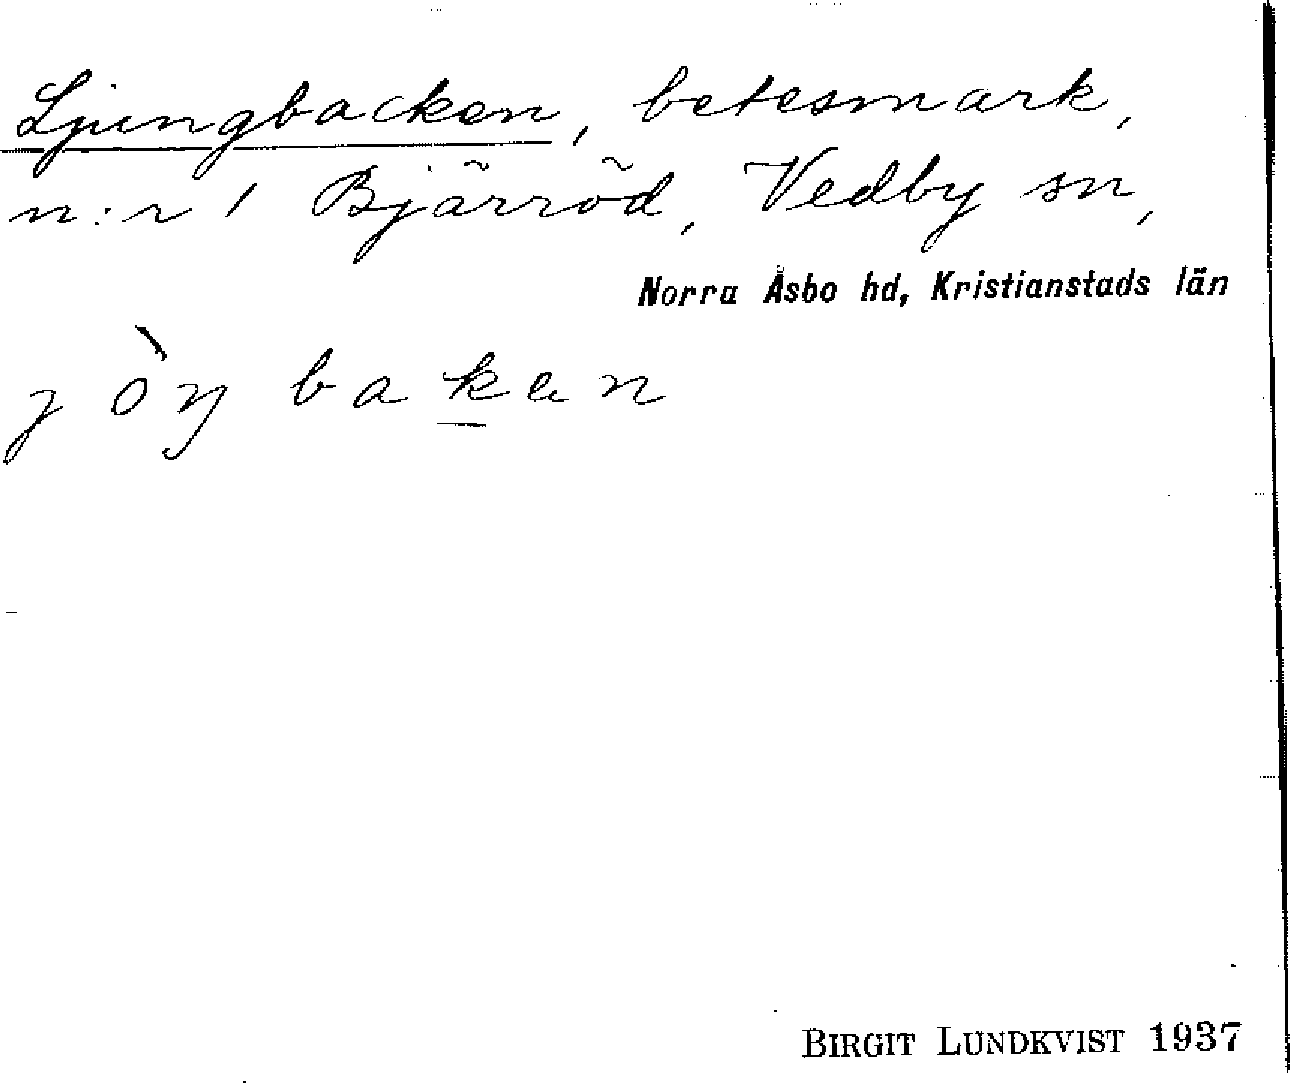 Ljungbacken, betesmark,
n:r 1 Bjärröd, Vedby sn,
Norra Åsbo hd, Kristianstads län
jòŋ bakan
BIRGIT LUNDKVIST 1937